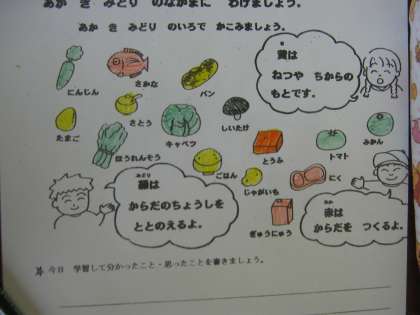 あか き みどり のなかまに わけましょう。
あか き みどり のいろで かこみましょう。
にんじん
さかな
パン
き
黄は
ねつや ちからの
もとです。
たまご
さとう
キャベツ
しいたけ
ほうれんそう
ごはん
とうふ
トマト
みかん
じゃがいも
にく
ぎゅうにゅう
みどり
緑は
からだのちょうしを
ととのえるよ。
あか
赤は
からだを つくるよ。
今日 学習して分かったこと・思ったことを書きましょう。